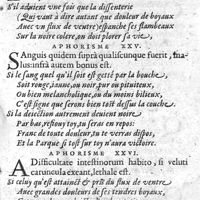 S'il aduient vne fois que la dissenterie
(Qui vaut à dire autant que douleur de boyaux
Auec vn flux de ventre) espanche ses flambeaux
Sur la noire colere, on doit plorer sa vie.
APHORISME XXV.
SAnguis quidem supra qualiscunque fuerit, malus:infra autem bonus est.
Si le sang quel qu'il soit est getté par la bouche,
Soit rouge, iaune, ou noir, pur ou pituiteux,
Ou bien melancholique, ou du moins bilieux,
C'est signe que serons bien tost dessus la couche.
Si la deiection autrement deuient noire
Par bas, resiouy toy, tu seras en repos:
Franc de toute douleur, tu te verras dispos,
Et la Parque à tout sur toy n'aura victoire.
APHORISME XXVI.
A Difficultate intestinorum habito, si veluti caruncula exeant, lethale est.
Si celuy qui est attainct & pris du flux de ventre
Auec grandes douleurs de ses tendres boyaux,